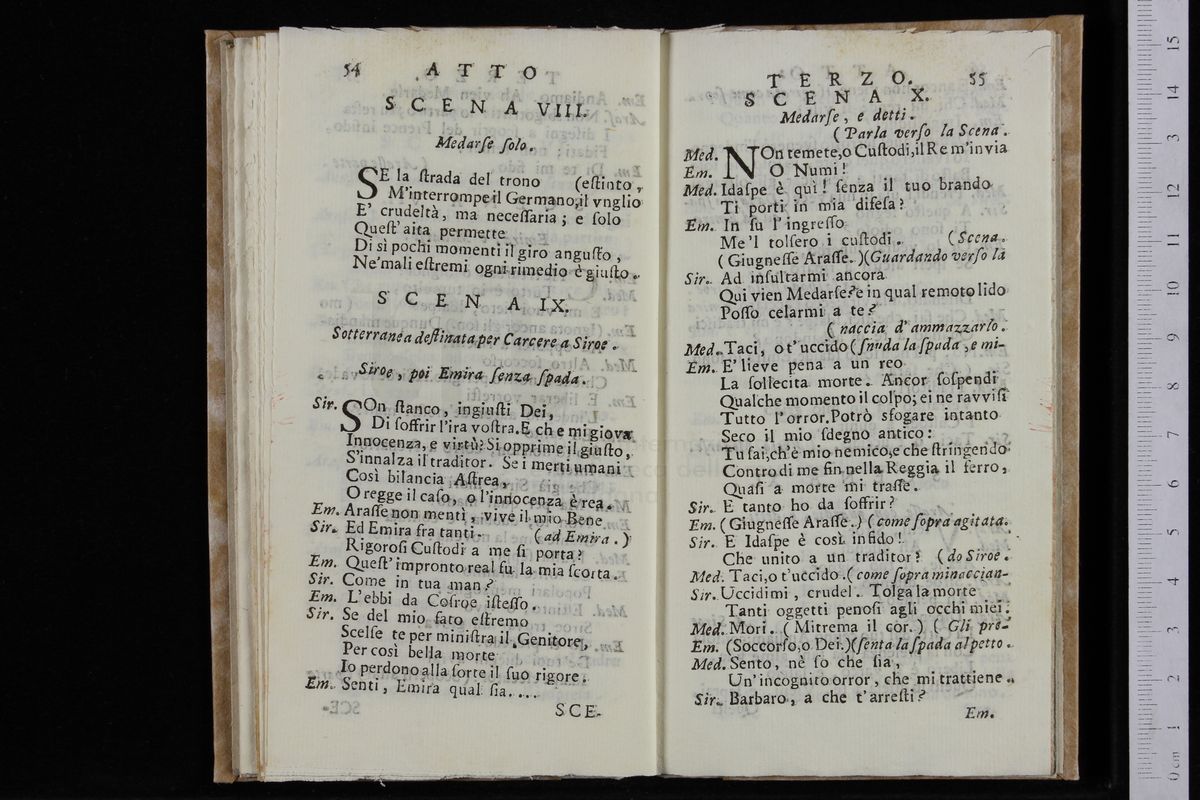 54 ATTO
SCENA VIII.
Medarſe ſolo.
SE la ſtrada del trono (eſtinto,
M'interrompe il Germano, il vuglio
E' crudeltà, ma neceſſaria; e ſolo
Queſt' aita permette
Di sì pochi momenti il giro anguſto,
Ne' mali eſtremi ogni rimedio è giuſto.
SCENA IX.
Sotterranea deſtinata per Carcere a Siroe.
Siroe, poi Emira ſenza ſpada.
Sir. SOn ſtanco, ingiuſti Dei,
Di ſoffrir l'ira voſtra. E che mi giova
Innocenza, e virtù? Si opprime il giuſto,
S'innalza il traditor. Se i merti umani
Così bilancia Aſtrea,
O regge il caſo, o l'innocenza è rea.
Em. Araſſe non mentì, vive il mio Bene
Sir. Ed Emira fra tanti. (ad Emira.)
Rigoroſi Cuſtodi a me ſi porta?
Em. Queſt' impronto real fu la mia ſcorta.
Sir. Come in tua man?
Em. L'ebbi da Coſroe iſteſſo.
Sir. Se del mio fato eſtremo
Scelſe te per miniſtra il Genitore,
Per così bella morte
Io perdono alla ſorte il ſuo rigore.
Em. Senti, Emira qual ſia....
SCE-
TERZO. 55
SCENA X.
Medarſe, e detti.
(Parla verſo la Scena.
Med. NOn temete, o Cuſtodi, il Re m'invia
Em. O Numi!
Med. Idaſpe è quì! ſenza il tuo brando
Ti porti in mia difeſa?
Em. In ſu l'ingreſſo
Me 'l tolſero i cuſtodi. (Scena.
(Giugneſſe Araſſe.)(Guardando verſo la
Sir. Ad inſultarmi ancora
Qui vien Medarſe? e in qual remoto lido
Poſſo celarmi a te?
(naccia d' ammazzarlo.
Med. Taci, o t' uccido (ſnuda la ſpada, e mi-
Em. E' lieve pena a un reo
La ſollecita morte. Ancor ſoſpendi
Qualche momento il colpo; ei ne ravviſi
Tutto l'orror. Potrò sfogare intanto
Seco il mio ſdegno antico:
Tu ſai, ch'è mio nemico, e che ſtringendo
Contro di me fin nella Reggia il ferro,
Quaſi a morte mi traſſe.
Sir. E tanto ho da ſoffrir?
Em. (Giugneſſe Araſſe.) (come ſopra agitata.
Sir. E Idaſpe è così infido!
Che unito a un traditor? (do Siroe.
Med. Taci, o t'uccido. (come ſopra minaccian-
Sir. Uccidimi, crudel. Tolga la morte
Tanti oggetti penoſi agli occhi miei.
Med. Mori. (Mi trema il cor.) (Gli pre-
Em. (Soccorſo, o Dei.)(ſenta la ſpada al petto.
Med. Sento, nè ſo che ſia,
Un' incognito orror, che mi trattiene.
Sir. Barbaro, a che t'arreſti?
Em.
0 cm 1 2 3 4 5 6 7 8 9 10 11 12 13 14 15